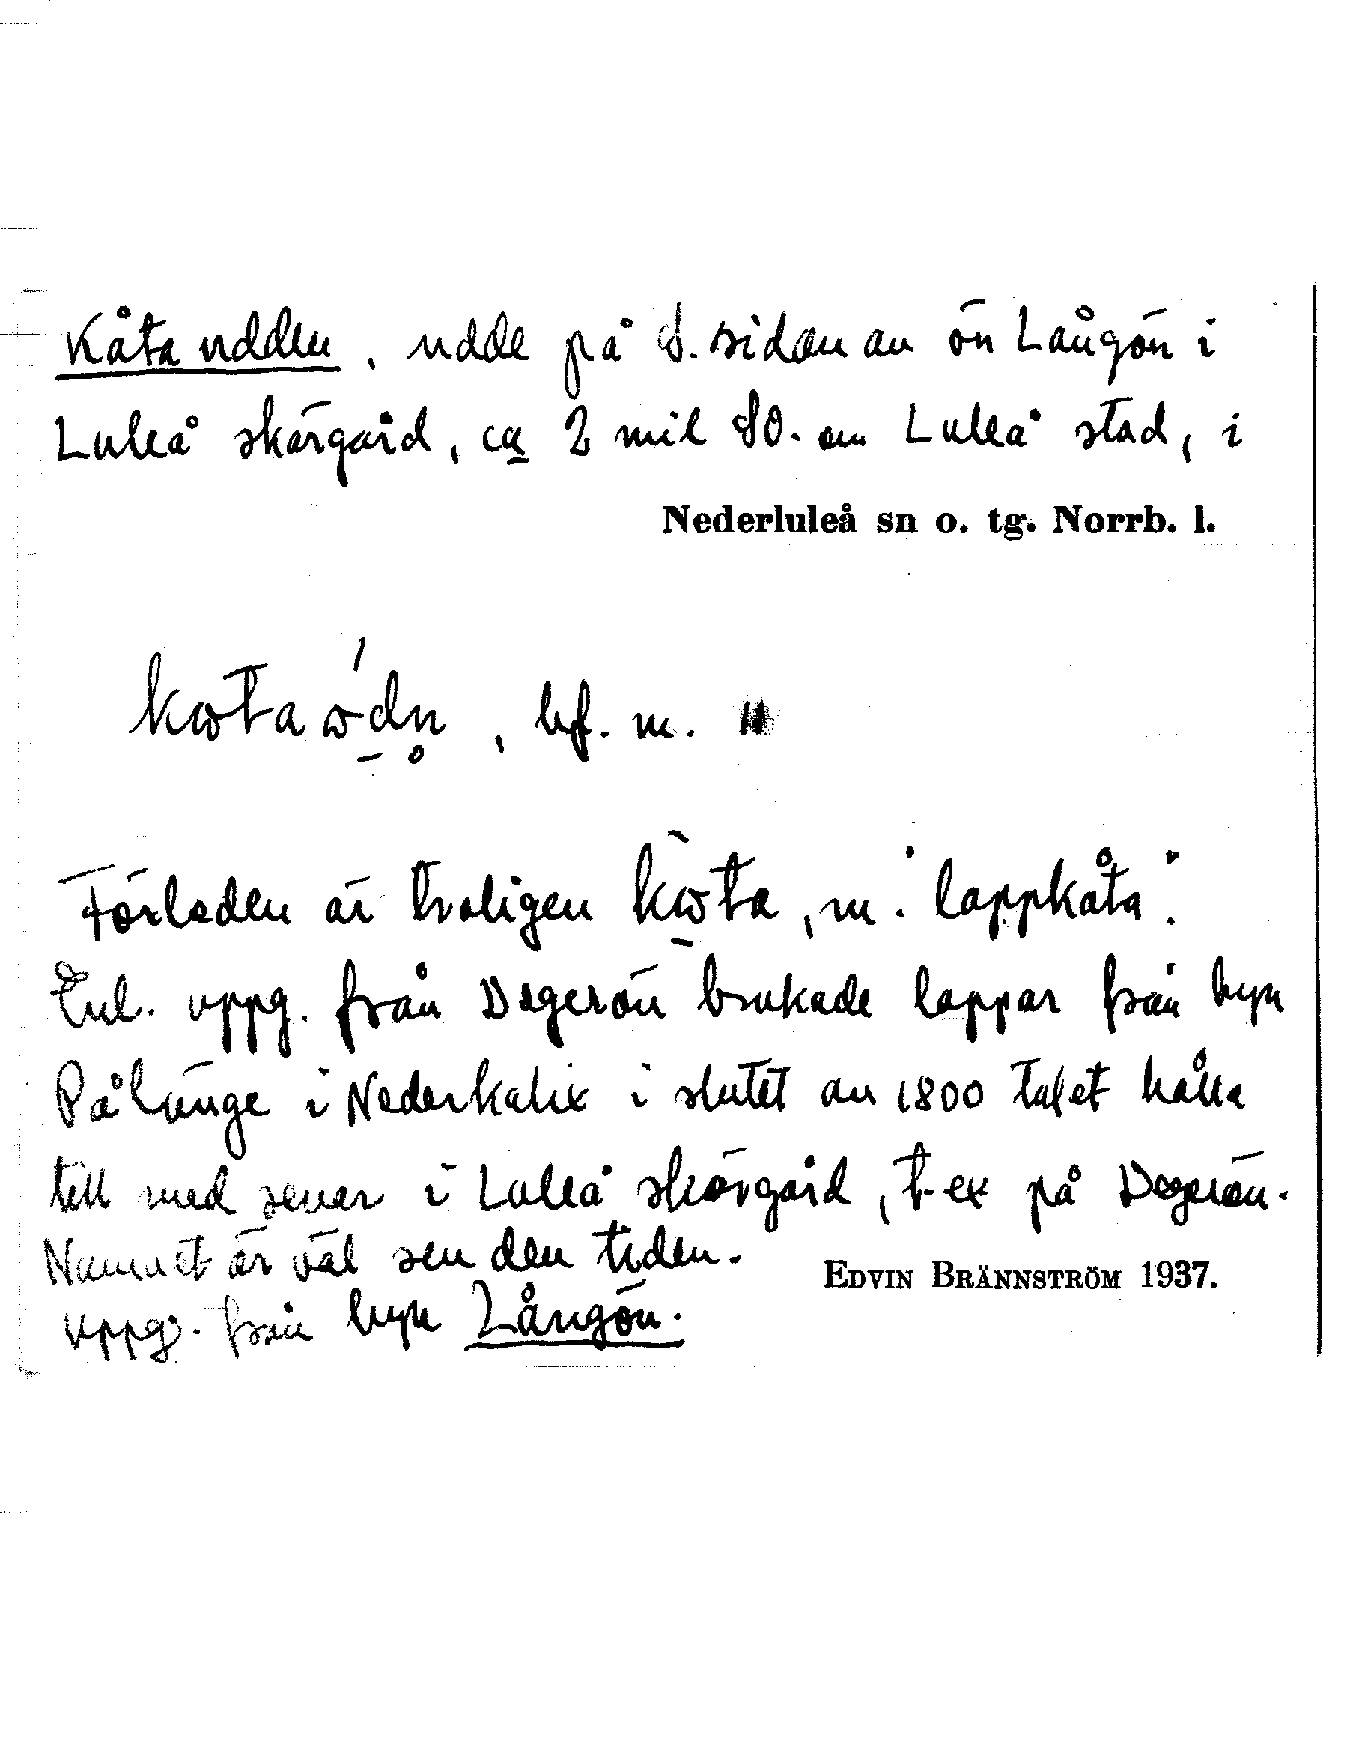 Kåtaudden, udde på S. sidan av ön Långön i
Luleå skärgård, ca 2 mil SO. om Luleå stad, i
Nederluleå sn o. tg. Norrb. l.
bf. m.
Förleden är troligen kωta, m. "lappkåta".
Enl. uppg. från Degerön brukade lappar från byn
Pålänge i Nederkalix i slutet av 1800 talet hålla
till med renar i Luleå skärgård, t. ex på Degerön.
Namnet är väl sen den tiden.
EDVIN BRÄNNSTRÖM 1937.
uppg. från byn Långön.